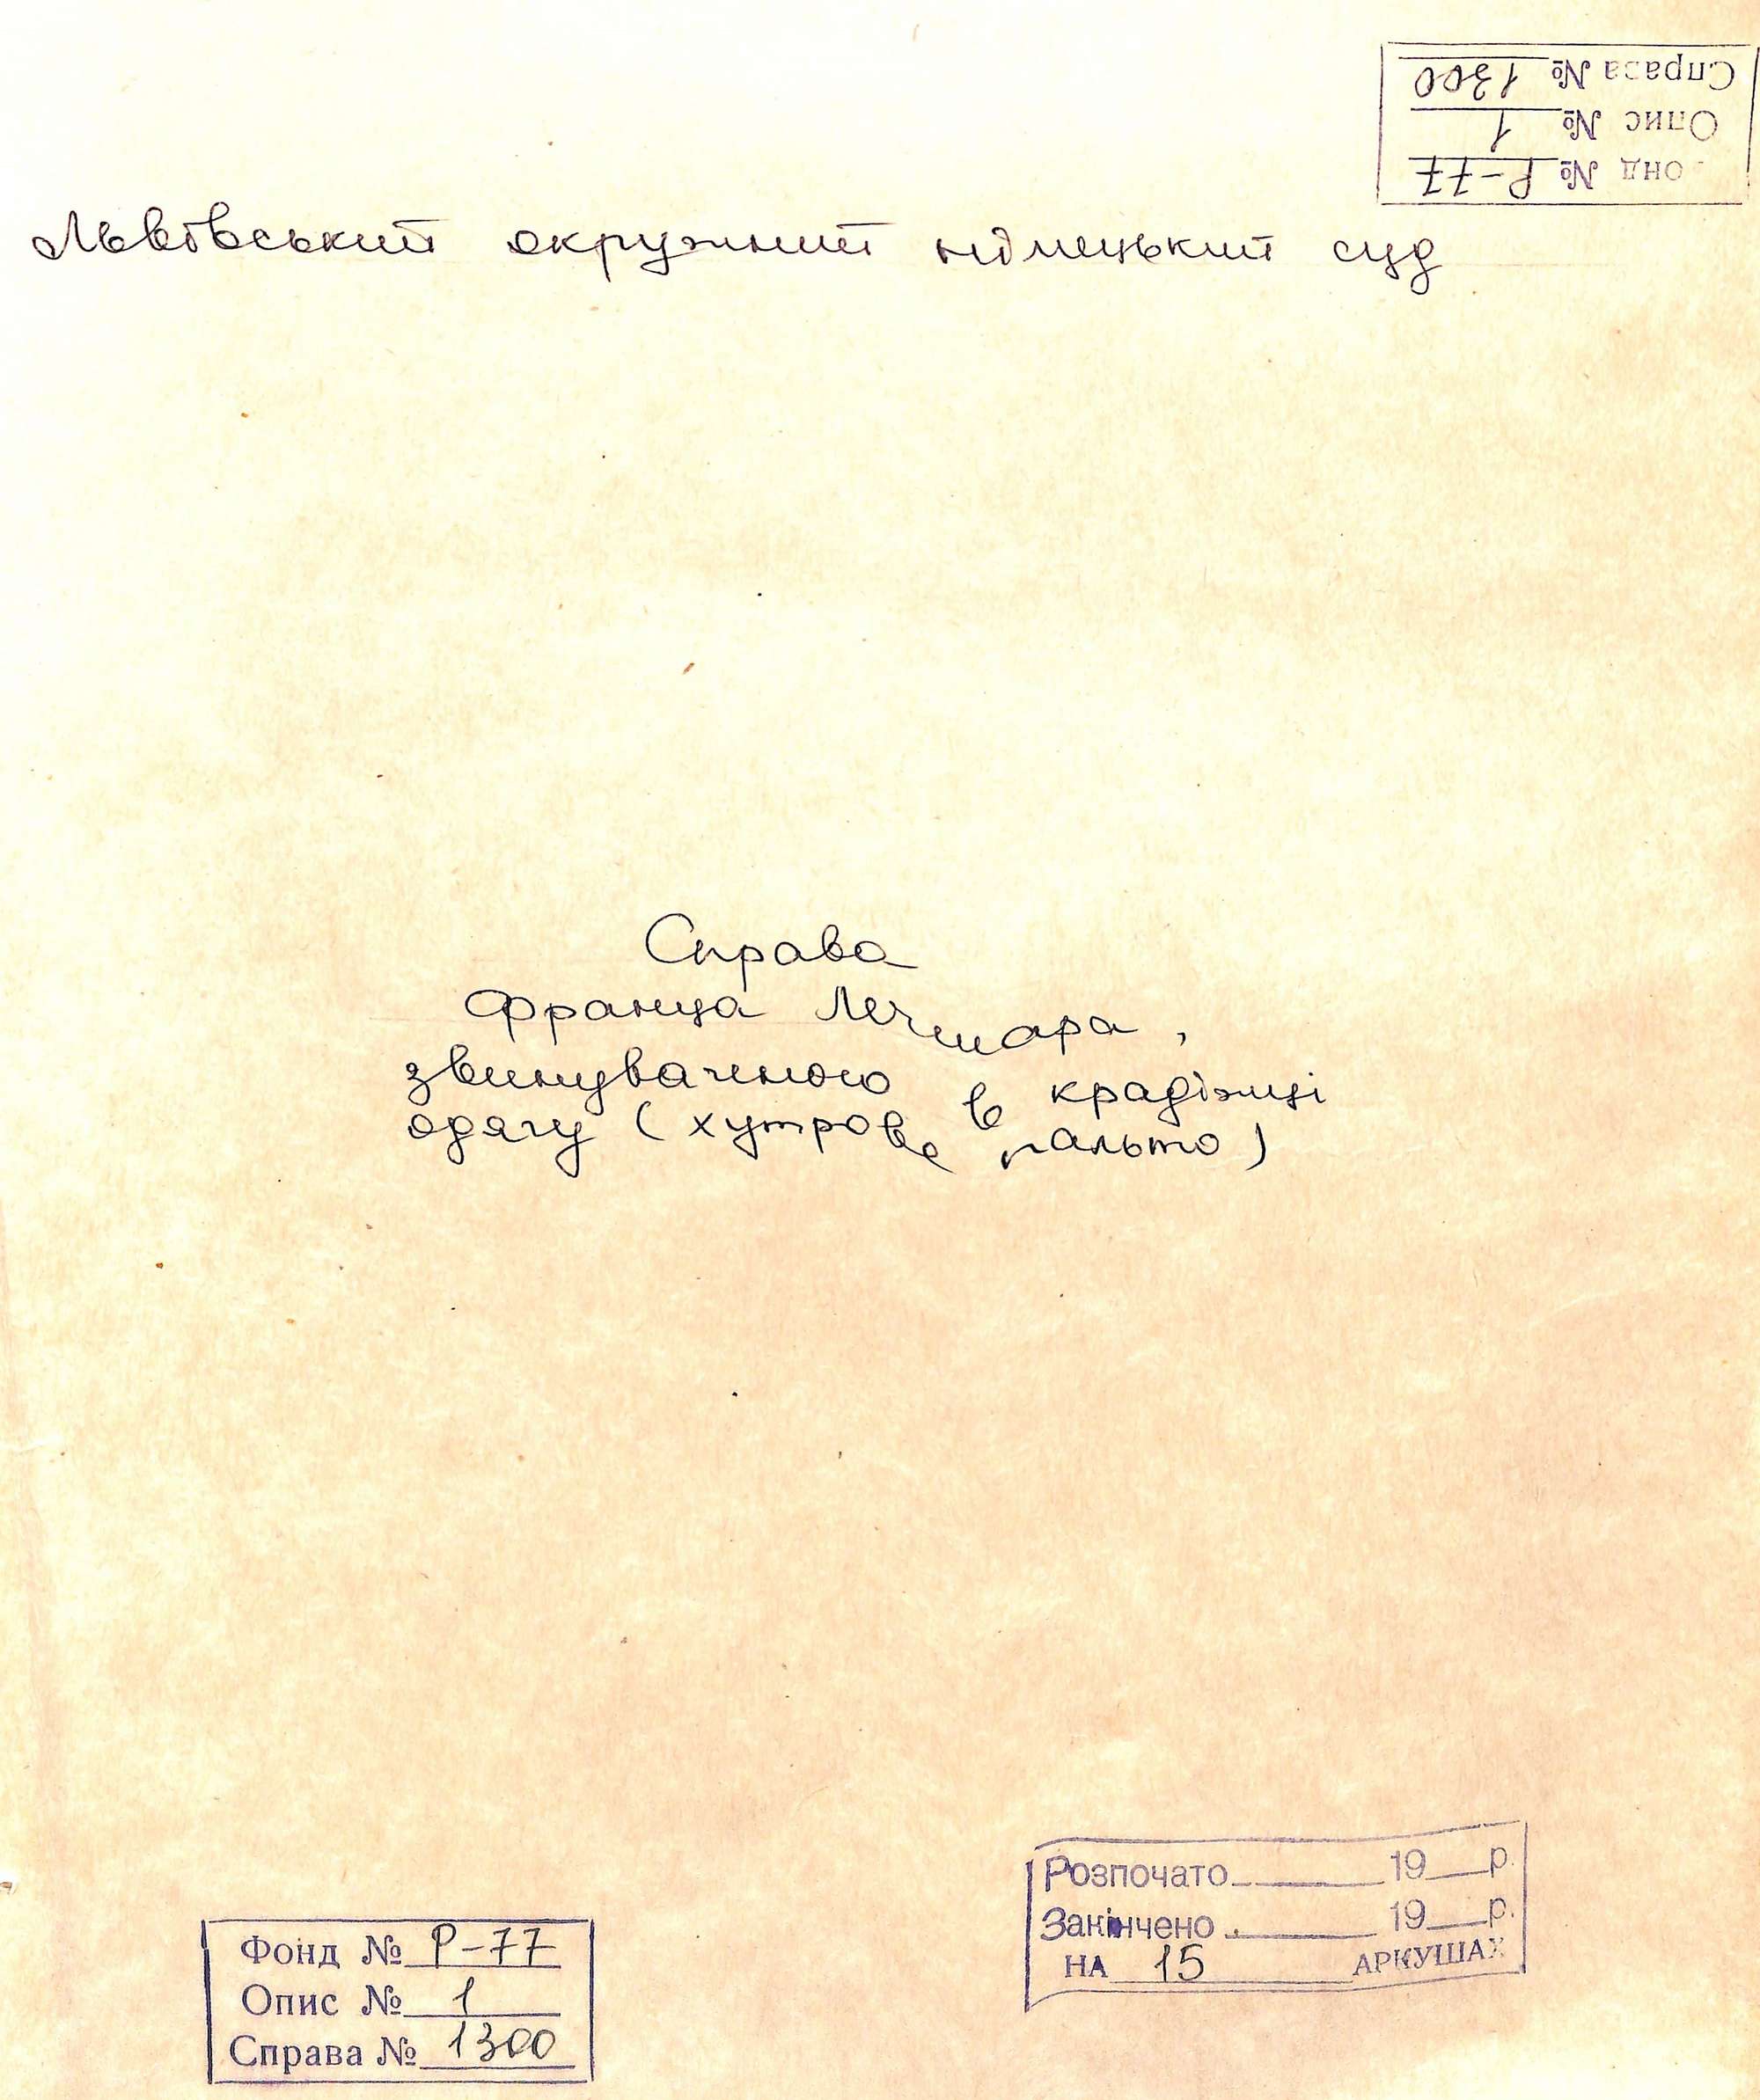 Справа № 1300
Опис № 1
онд № Р-77
Львівський окружний німецький суд
Справа
Франца Лечшара,
звинуваченого в крадіжці
одягу (хутрове пальто)
Розпочато 19 р.
Закінчено 19 р.
НА 15 АРКУШАХ
Фонд № Р-77
Опис № 1
Справа № 1300